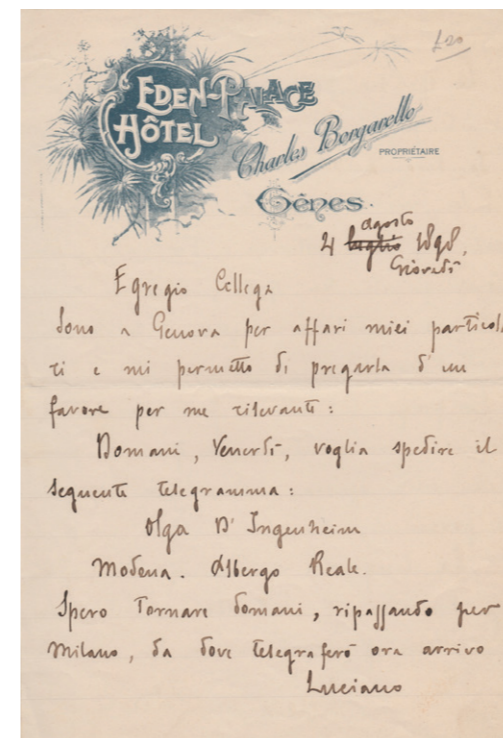 £20
EDEN-PALACE
HÔTEL
Charles Borgarello
PROPRIÉTAIRE
Gênes.
agosto
4 luglio 1898,
Giovedì
Egregio Collega
Sono a Genova per affari miei particola
ri e mi permetto di pregarla d'un
favore per me rilevante:
Domani, Venerdì, voglia spedire il
seguente telegramma:
Olga D'Ingenheim
Modena. Albergo Reale.
Spero tornare domani, ripassando per
Milano, da dove telegraferò ora arrivo
Luciano